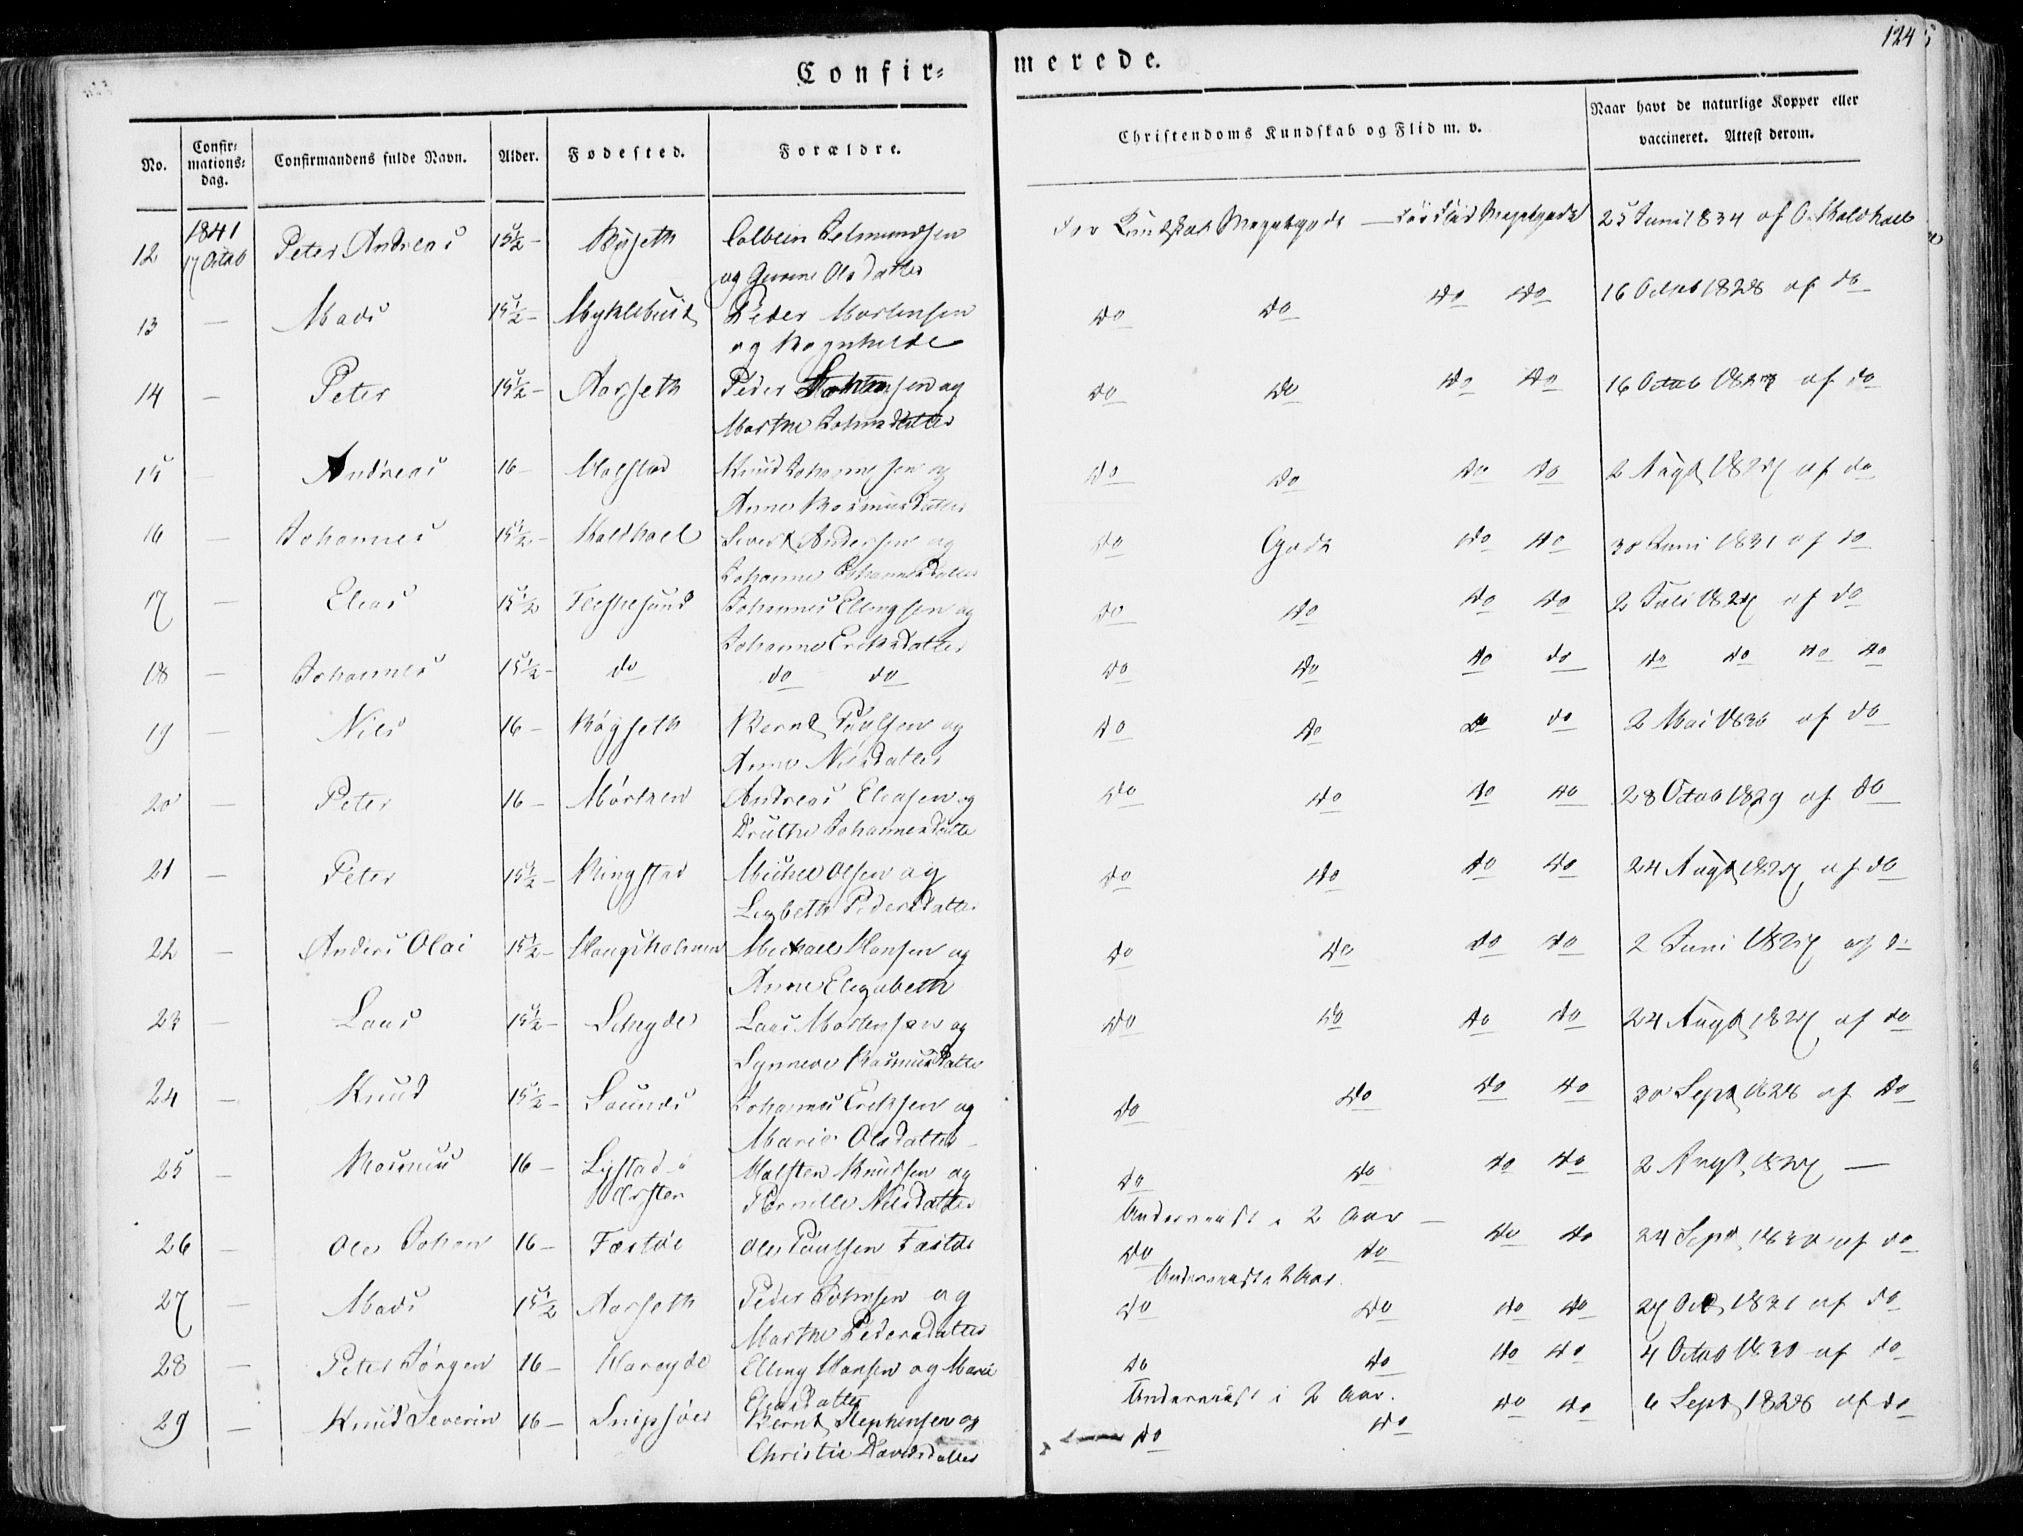 124
Confir=
merede.
No.
Confir=
mations=
dag.
Confirmandens fulde Navn.
Alder.
Fødested.
Forældre.
Christendoms Kundskab og Flid m. v.
Naar havt de naturlige Kopper eller
vaccineret. Attest derom.
1841
12 17 Octob Peter Andreas 15½ - Colbein
og Olsdatter Kundskab Megetgode Flid Megetgode 25 Juni 1834 af O. Koldhoel
13 — Mads 15½ - Myklebust Peder Mortensen
og Ragnhilde do do do do 16 Octob 1828 af do
14 — Peter 15½ - Aarseth Peder Johnsen og
Marthe Johnsdatter do do do do 16 Octob af do
15 — Andreas 16 - Molstad Knud Johannesen og
Anne Rasmusdatter do do do do 2 Augt 1827 af do
16 — Johannes 15½ - Koldhoel Sivert Andersen og
Johanne Johannesdatter do Gode do do 30 Juni 1831 af do
17 — Elias 15½ Flessesund Johannes Ellingsen og
Johanne Eriksdatter do do do do 2 Juli 1827 af do
18 — Johannes 15½ - do do do do do do do do do do do
19 — Nils 16 - Røgseth Bernt Paulsen og
Anne Nilsdatter do do do do 2 Mai 1836 af do
20 — Peter 16 - Andreas Eliasen og
Johannesdatter do do do do 28 Octob 1829 af do
21 — Peter 15½ - Ringstad Michel Olsen og
Lisbeth Pedersdatter do do do do 24 Augt 1827 af do
22 — Anders Olai 15½ - Haugsholmen Michael Hansen og
Anne Elizabeth do do do do 2 Juni 1827 af do
23 — Laas 15½ - Laas Mortensen og
Synneve Rasmusdatter do do do do 24 Augt 1827 af do
24 — Knud 15½ - Saunes Johannes Eriksen og
Marie Olsdatter do do do do 30 Sept 1828 af do
25 — Rasmus 16 - Lystad i
Ørsten Halsten Knudsen og
Pernille Nilsdatter do do do do 2 Augt 1827 —
Underviist i 2 Aar —
26 — Ole Johan 16 - Ole Paulsen do do do do 24 Sept 1830 af do
Underviist i 2 Aar.
27 — Mads 15½ Aarseth Peder Johnsen og
Marthe Pedersdatter do do do do 27 Oct 1831 af do
28 — Peter Jørgen 16 - Hareyde Elling Hansen og Marie
do do do do 4 Octob 1830 af do
Underviist i 2 Aar.
29 — Knud Severin 16 - Snipsøer Bernt Stephensen og
Christie Davidsdatter do do do do 6 Sept 1828 af do